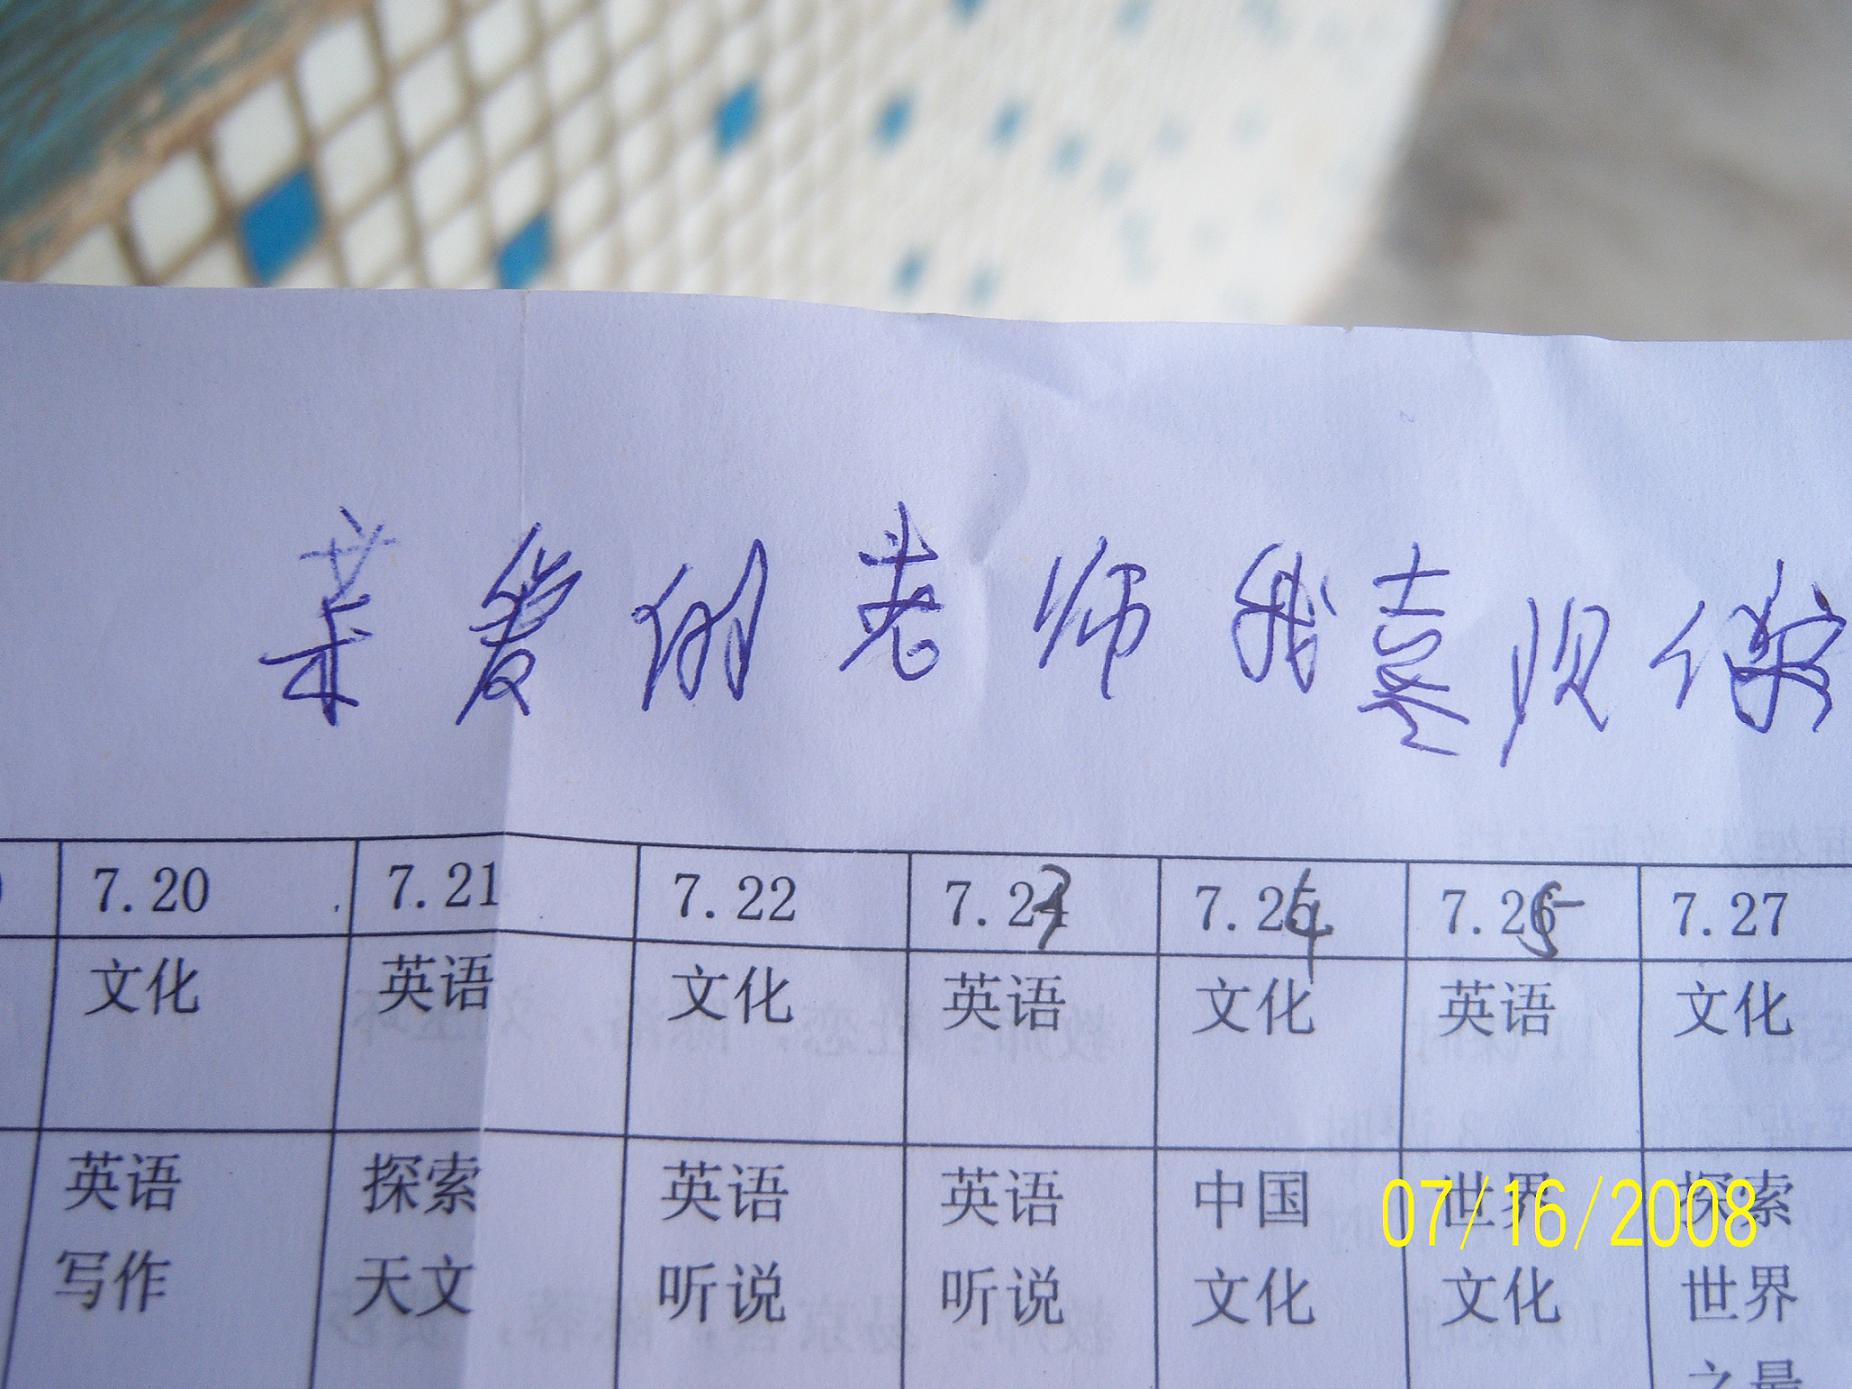 亲爱的老师我喜欢你
7.20 7.21 7.22 7.23 7.24 7.25 7.27
文化 英语 文化 英语 文化 英语 文化
英语 探索 英语 英语 中国 世界 探索
写作 天文 听说 听说 文化 文化 世界
之最
07/16/2008